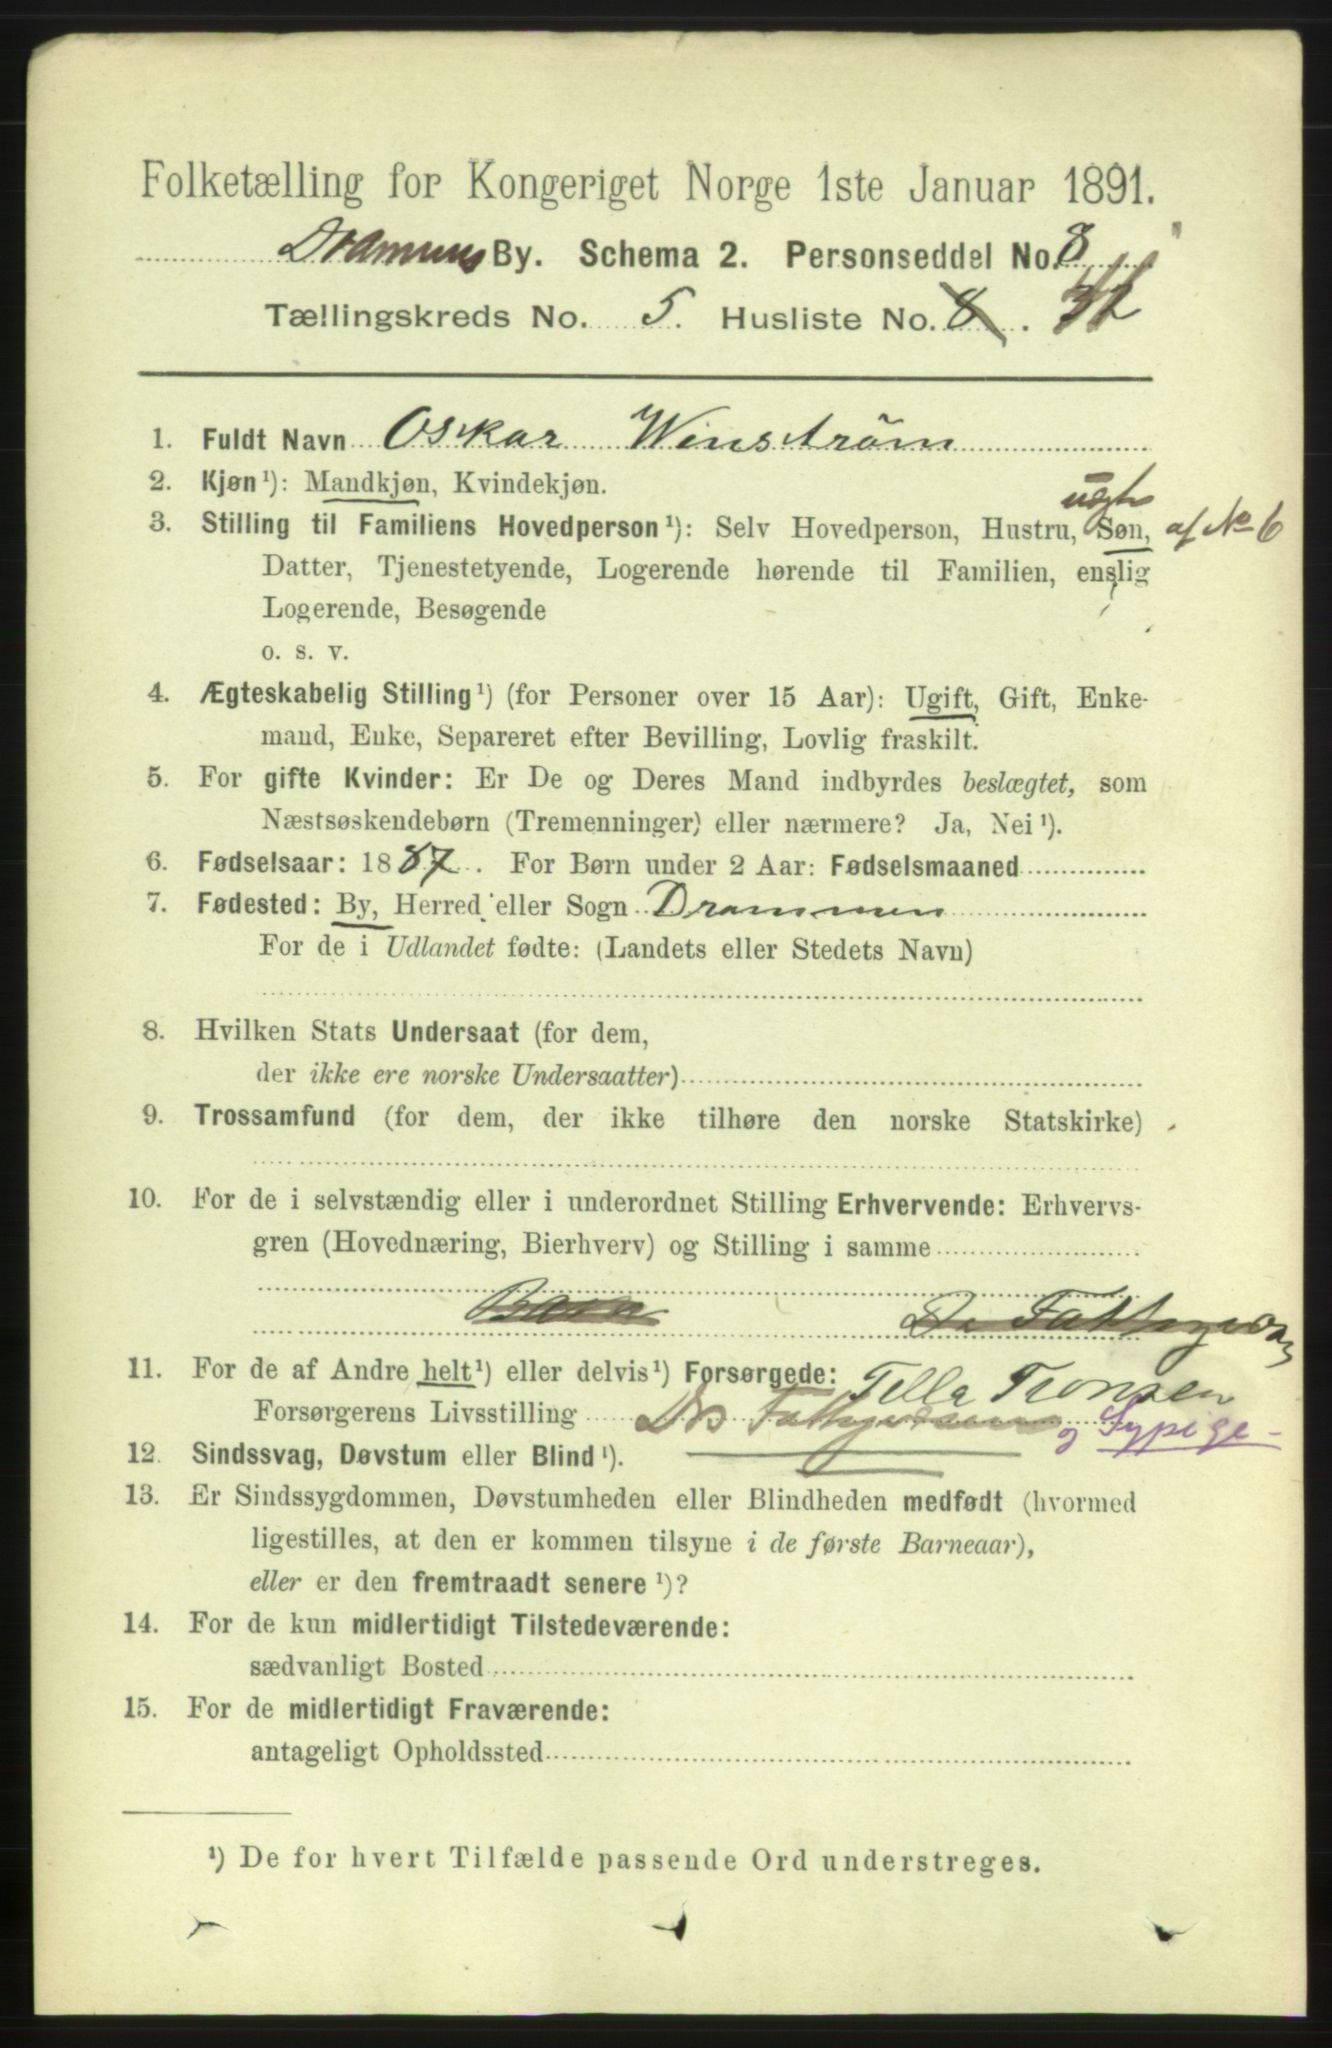 Folketælling for Kongeriget Norge 1ste Januar 1891.
Drammens By. Schema 2. Personseddel No. 8
Tællingskreds No. 5. Husliste No. 8.
1. Fuldt Navn Oskar Winström
2. Kjøn ¹): Mandkjøn, Kvindekjøn.
3. Stilling til Familiens Hovedperson ¹): Selv Hovedperson, Hustru, uægte Søn, af No 6
Datter, Tjenestetyende, Logerende hørende til Familien, enslig
Logerende, Besøgende
o. s. v.
4. Ægteskabelig Stilling ¹) (for Personer over 15 Aar): Ugift, Gift, Enke-
mand, Enke, Separeret efter Bevilling, Lovlig fraskilt.
5. For gifte Kvinder: Er De og Deres Mand indbyrdes beslægtet, som
Næstsøskendebørn (Tremenninger) eller nærmere? Ja, Nei ¹).
6. Fødselsaar: 1887. For Børn under 2 Aar: Fødselsmaaned
7. Fødested: By, Herred eller Sogn Drammen
For de i Udlandet fødte: (Landets eller Stedets Navn)
8. Hvilken Stats Undersaat (for dem,
der ikke ere norske Undersaatter)
9. Trossamfund (for dem, der ikke tilhøre den norske Statskirke)
10. For de i selvstændig eller i underordnet Stilling Erhvervende: Erhvervs-
gren (Hovednæring, Bierhverv) og Stilling i samme
Barn
11. For de af Andre helt ¹) eller delvis ¹) Forsørgede: Tronsen
Forsørgerens Livsstilling Drs Fattigvæsen og Sypige -
12. Sindssvag, Døvstum eller Blind ¹).
13. Er Sindssygdommen, Døvstumheden eller Blindheden medfødt (hvormed
ligestilles, at den er kommen tilsyne i de første Barneaar),
eller er den fremtraadt senere ¹)?
14. For de kun midlertidigt Tilstedeværende:
sædvanligt Bosted
15. For de midlertidigt Fraværende:
antageligt Opholdssted
¹) De for hvert Tilfælde passende Ord understreges.